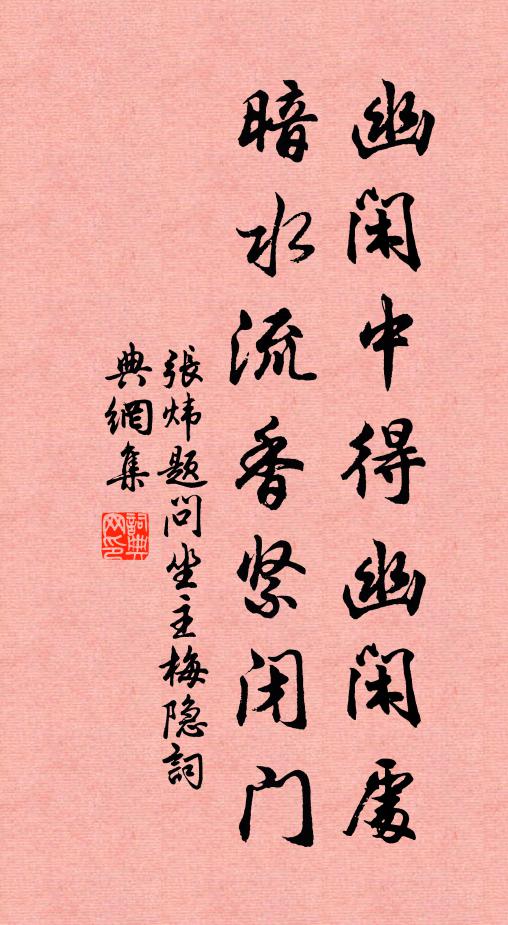 幽閑中得幽閑處
暗水流香紧闭门
張炜题问坐主梅隐詞
典網集
詞典
网印